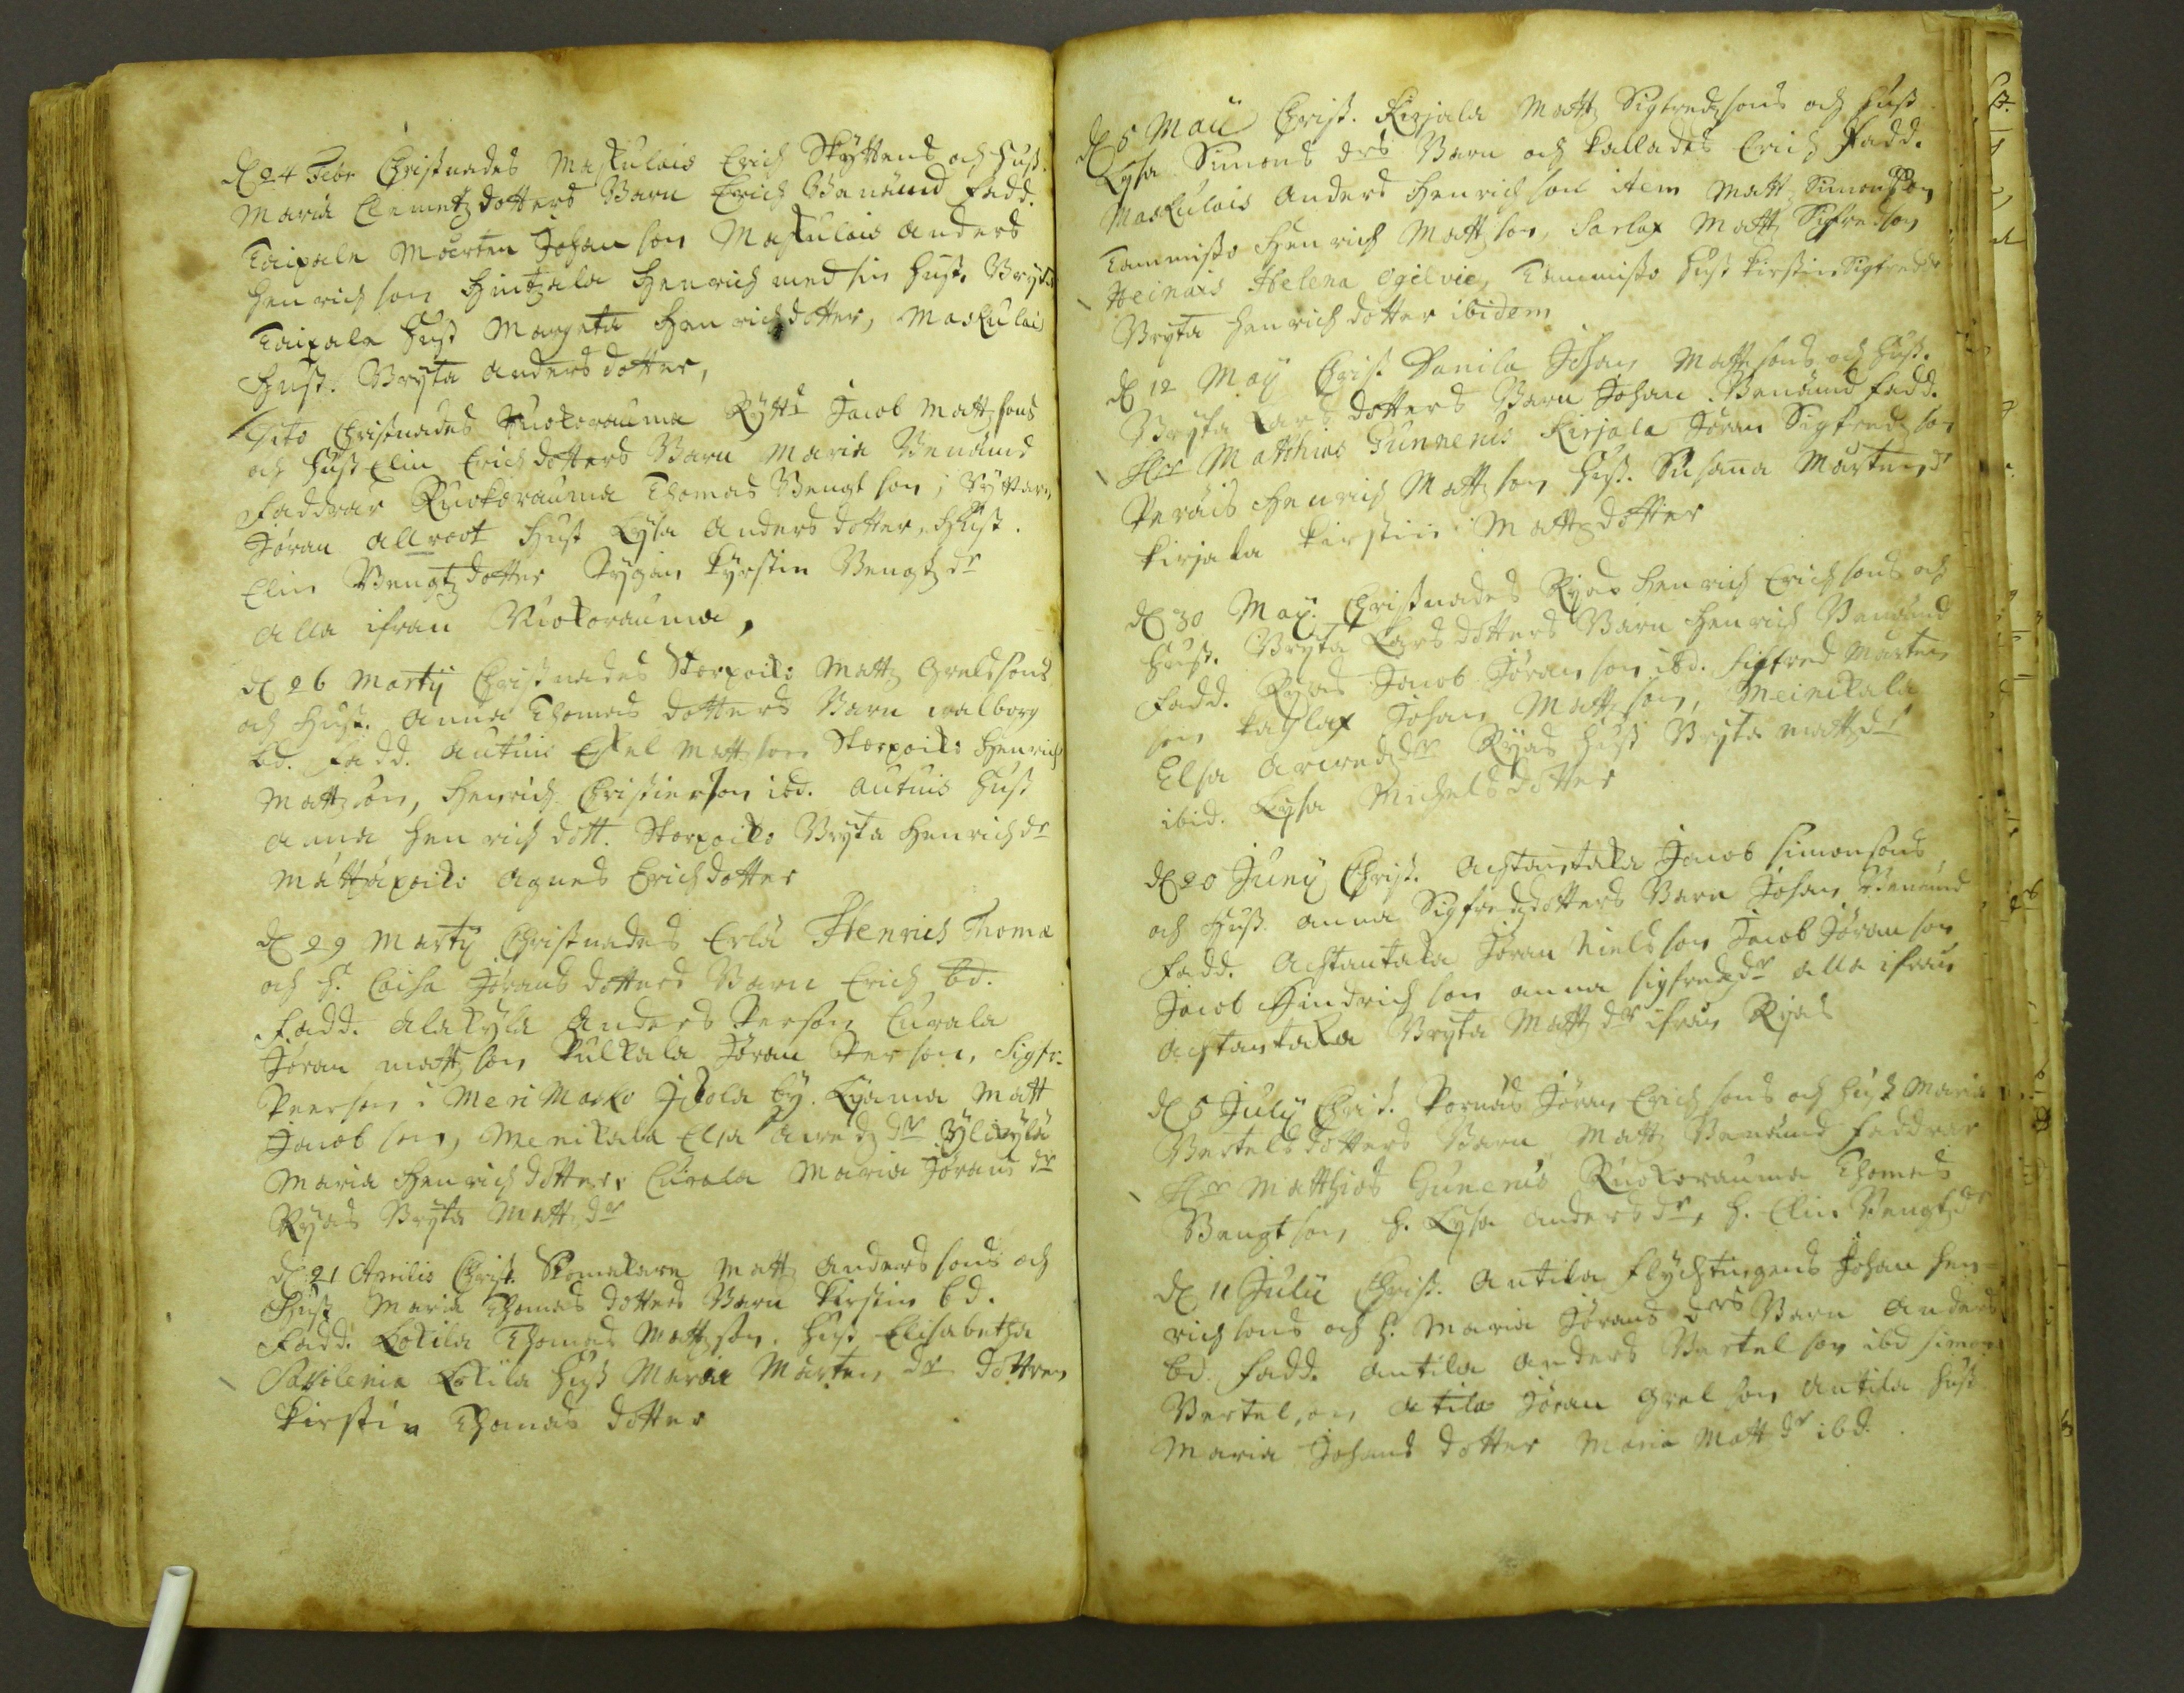 d. 24 Febr Christnades Maskulais Erich Skyttens och Hust.
Maria Clemetz dotters Barn Erich Benämd Fadd.
Taipale Mårten Johan son Maskulais Anders
Henrich son Hintzala Henrich med sin Hust. Bryta
Taipale Hust Margeta Henrichdotter, Maskulais
Hust. Bryta Anders dotter,
Dito Christnades Ruokorauma Rytt Jacob Mattz sons
och Hust Elin Erichdotters Barn Maria Benämd
Faddrar Ruokorauma Thomas Bengt son, Ryttarn
Jöran Allroot Hust Lysa Anders dotter, Hust.
Elin Bengtz dotter Pygan Kyrstin Bengtz dr
alla ifran Ruokorauma,
d 26 Martij Christnades Storpoiko Matz Grelssons
och Hust. Anna Thomas dotters Barn walborg
bd. Fadd. Autuis Eskel Mattson Storpoiko Henrich
Mattz son, Henrich Christierson ibd. Autuis Hust
Anna Hen rich dott. Storpoiko Bryta Henrich dr
Mattäpoiko Agnes Erichdotter
d 29 Martij Christnades Erlä Henrich Thomæ
och H. Caisa Jörans dotters Barn Erich bd.
Fadd. Alakyla Anders Person Curala
Jöran Mattz son Kulkala Jöran Person, Sigfr.
Peerson i Meri Masko Jsola by. Lyama Matt
Jacob son, Menikala Elsa Arvedz dr Ylikylä
Maria Henrich dotter, Curala Maria Jörans dr
Ryas Bryta Mattz dr
d 21 Aprilis Christ. Skomakare Mattz Anders sons och
Hust Maria Thomas dotters Barn Kirstin bd.
Fadd. Lokila Thomas Mattz son. Hust Elisabetha
Lokila Hust Maria Mårtens dr dottren
Kirstin Thomas dotter
d 5 Maii Christ. Kirjala Mattz Sigfredz sons och Hust
Lysa Simons drs Barn och kallades Erich Fadd.
Maskulais Anders Henrich son item Mattz Simonson
Tammisto Henrich Mattz son, Sarlax Mattz Sigfredson
Heinäis Helena Ogilvie, Tammisto Hust Kirstin Sigfredzdr
Bryta Henrich dotter ibidem
d 12 Maij Christ Danila Johan Mattz sons och Hust.
Bryta Lars dotters Barn Johan Benämd Fadd.
Hr Matthias Gunnerus Kirjala Jöran Sigfredz son
Peräis Henrich Mattz son Hust. Susanna Mårtens dr
Kirjala Kirstin Mattz dotter
d 30 Maij. Christnades Ryas Henrich Erich sons och
Hust. Bryta Lars dotters Barn Henrich Benämd
Fadd. Ryas Jacob Jöran son ibd. Sigfred Mårten
son Kaslax Johan Mattz son, Meinikala
Elsa Arwedz dr Ryas Hust Bryta Mattz dr
ibid. Lysa Michels dotter
d 20 Junij Christ. Achtantaka Jacob Simonsons
och Hust. Anna Sigfredzdotters Barn Johan Benämd
Fadd. Achtantaka Jöran Nielsson Jacob Jöran son
Jacob Hindrich son Anna Sigfredz dr alla ifrån
Achtantaka Bryta Mattz dr ifrån Ryas
d 5 Julij Christ. Pornäs Jöran Erich sons och Hust Maria
Bertels dotters Barn Mattz Benämd Faddrar
Hr Matthias Gunerus Ruokorauma Thomas
Bengt son, H. Lysa Anders dr, H. Elin Bengtz dr
d 11 Julii Christ. Antila Flychtingens Johan Hen-
rich sons och H. Maria Jörans drs Barn Anders
bd. Fadd. Antila Anders Bertel son ibd Simon
Bertelson Atila Jöran Grel son Antila Hust
Maria Johans dotter Maria Matt dr ibd.